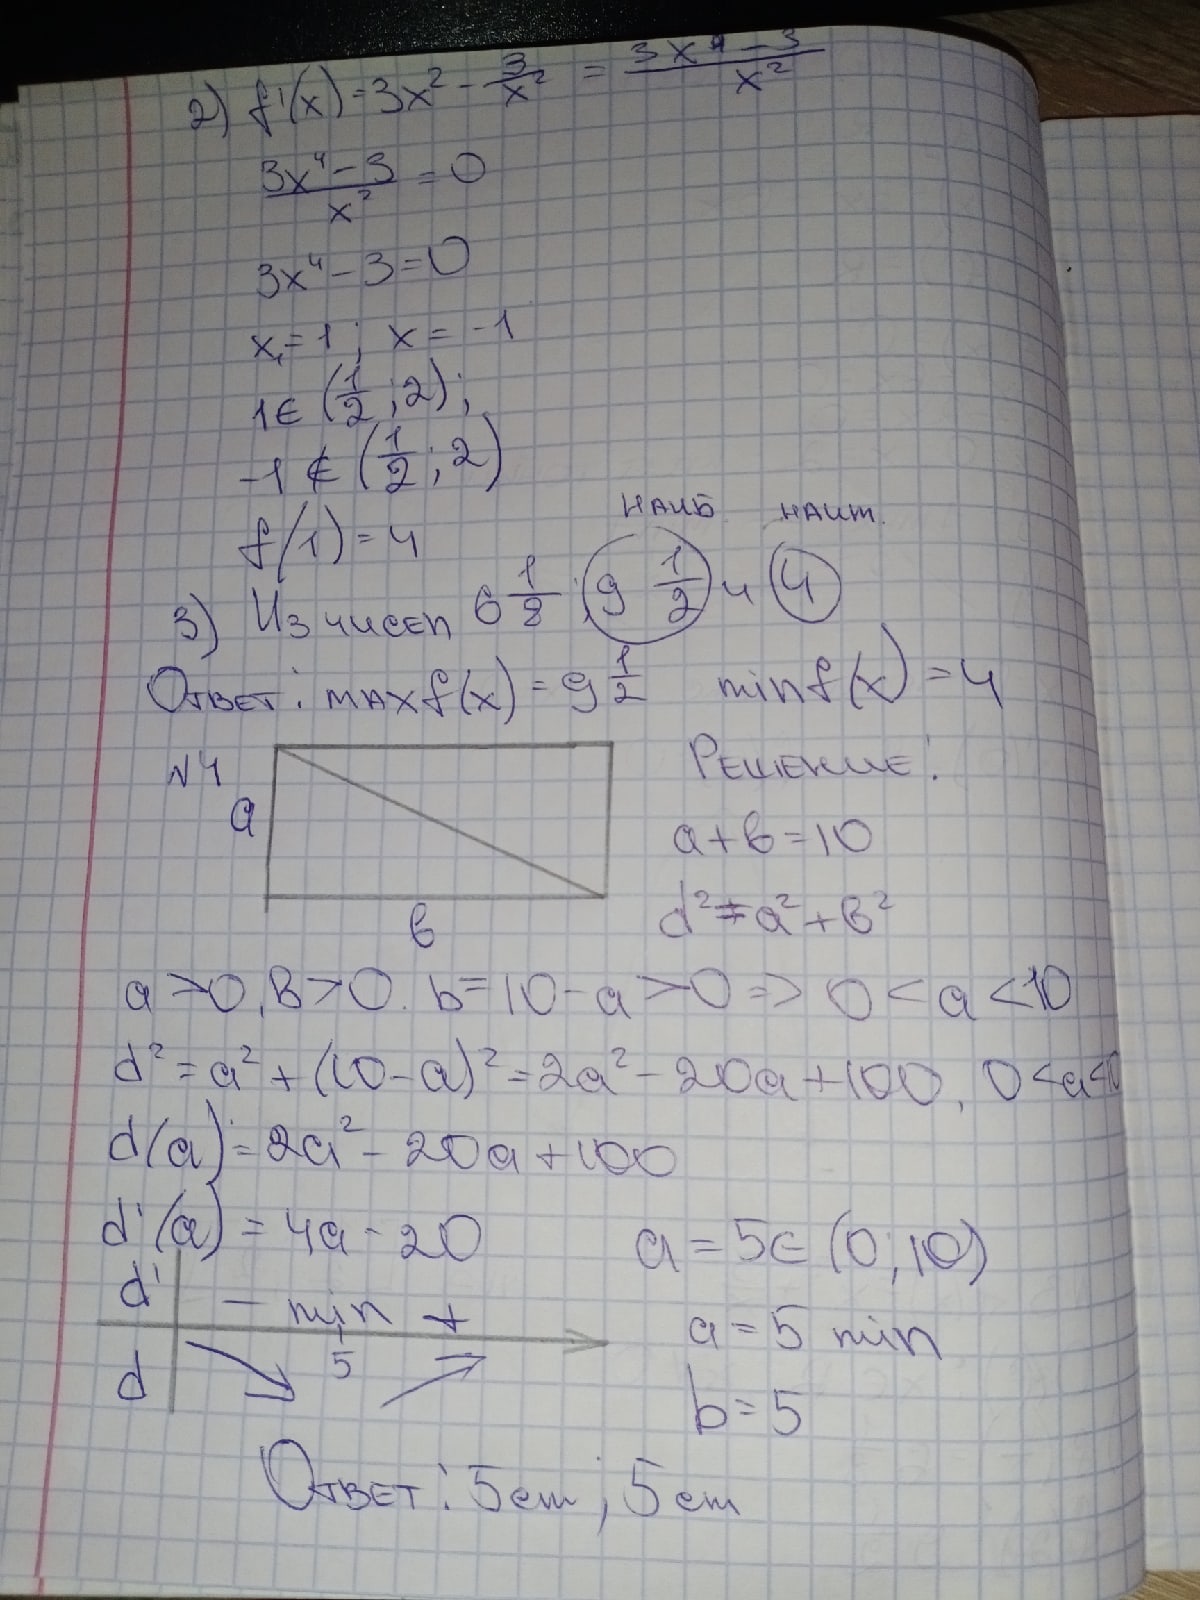 2) f'(x) = 3x² - 3/x² = (3x⁴ - 3)/x²
(3x⁴ - 3)/x² = 0
3x⁴ - 3 = 0
x₁ = 1 ; x = -1
1 ∈ (1/2 ; 2) ;
-1 ∉ (1/2 ; 2)
f(1) = 4
наиб наим.
3) Из чисел 6 1/8 ; 9 1/2 и 4
Ответ: max f(x) = 9 1/2 min f(x) = 4
N4 Решение:
a
a + b = 10
d² = a² + b²
b
a > 0, b > 0. b = 10 - a > 0 => 0 < a < 10
d² = a² + (10 - a)² = 2a² - 20a + 100, 0 < a < 10
d(a) = 2a² - 20a + 100
d'(a) = 4a - 20 a = 5 ∈ (0; 10)
d' - min +
5 a = 5 min
d
b = 5
Ответ: 5 cm ; 5 cm